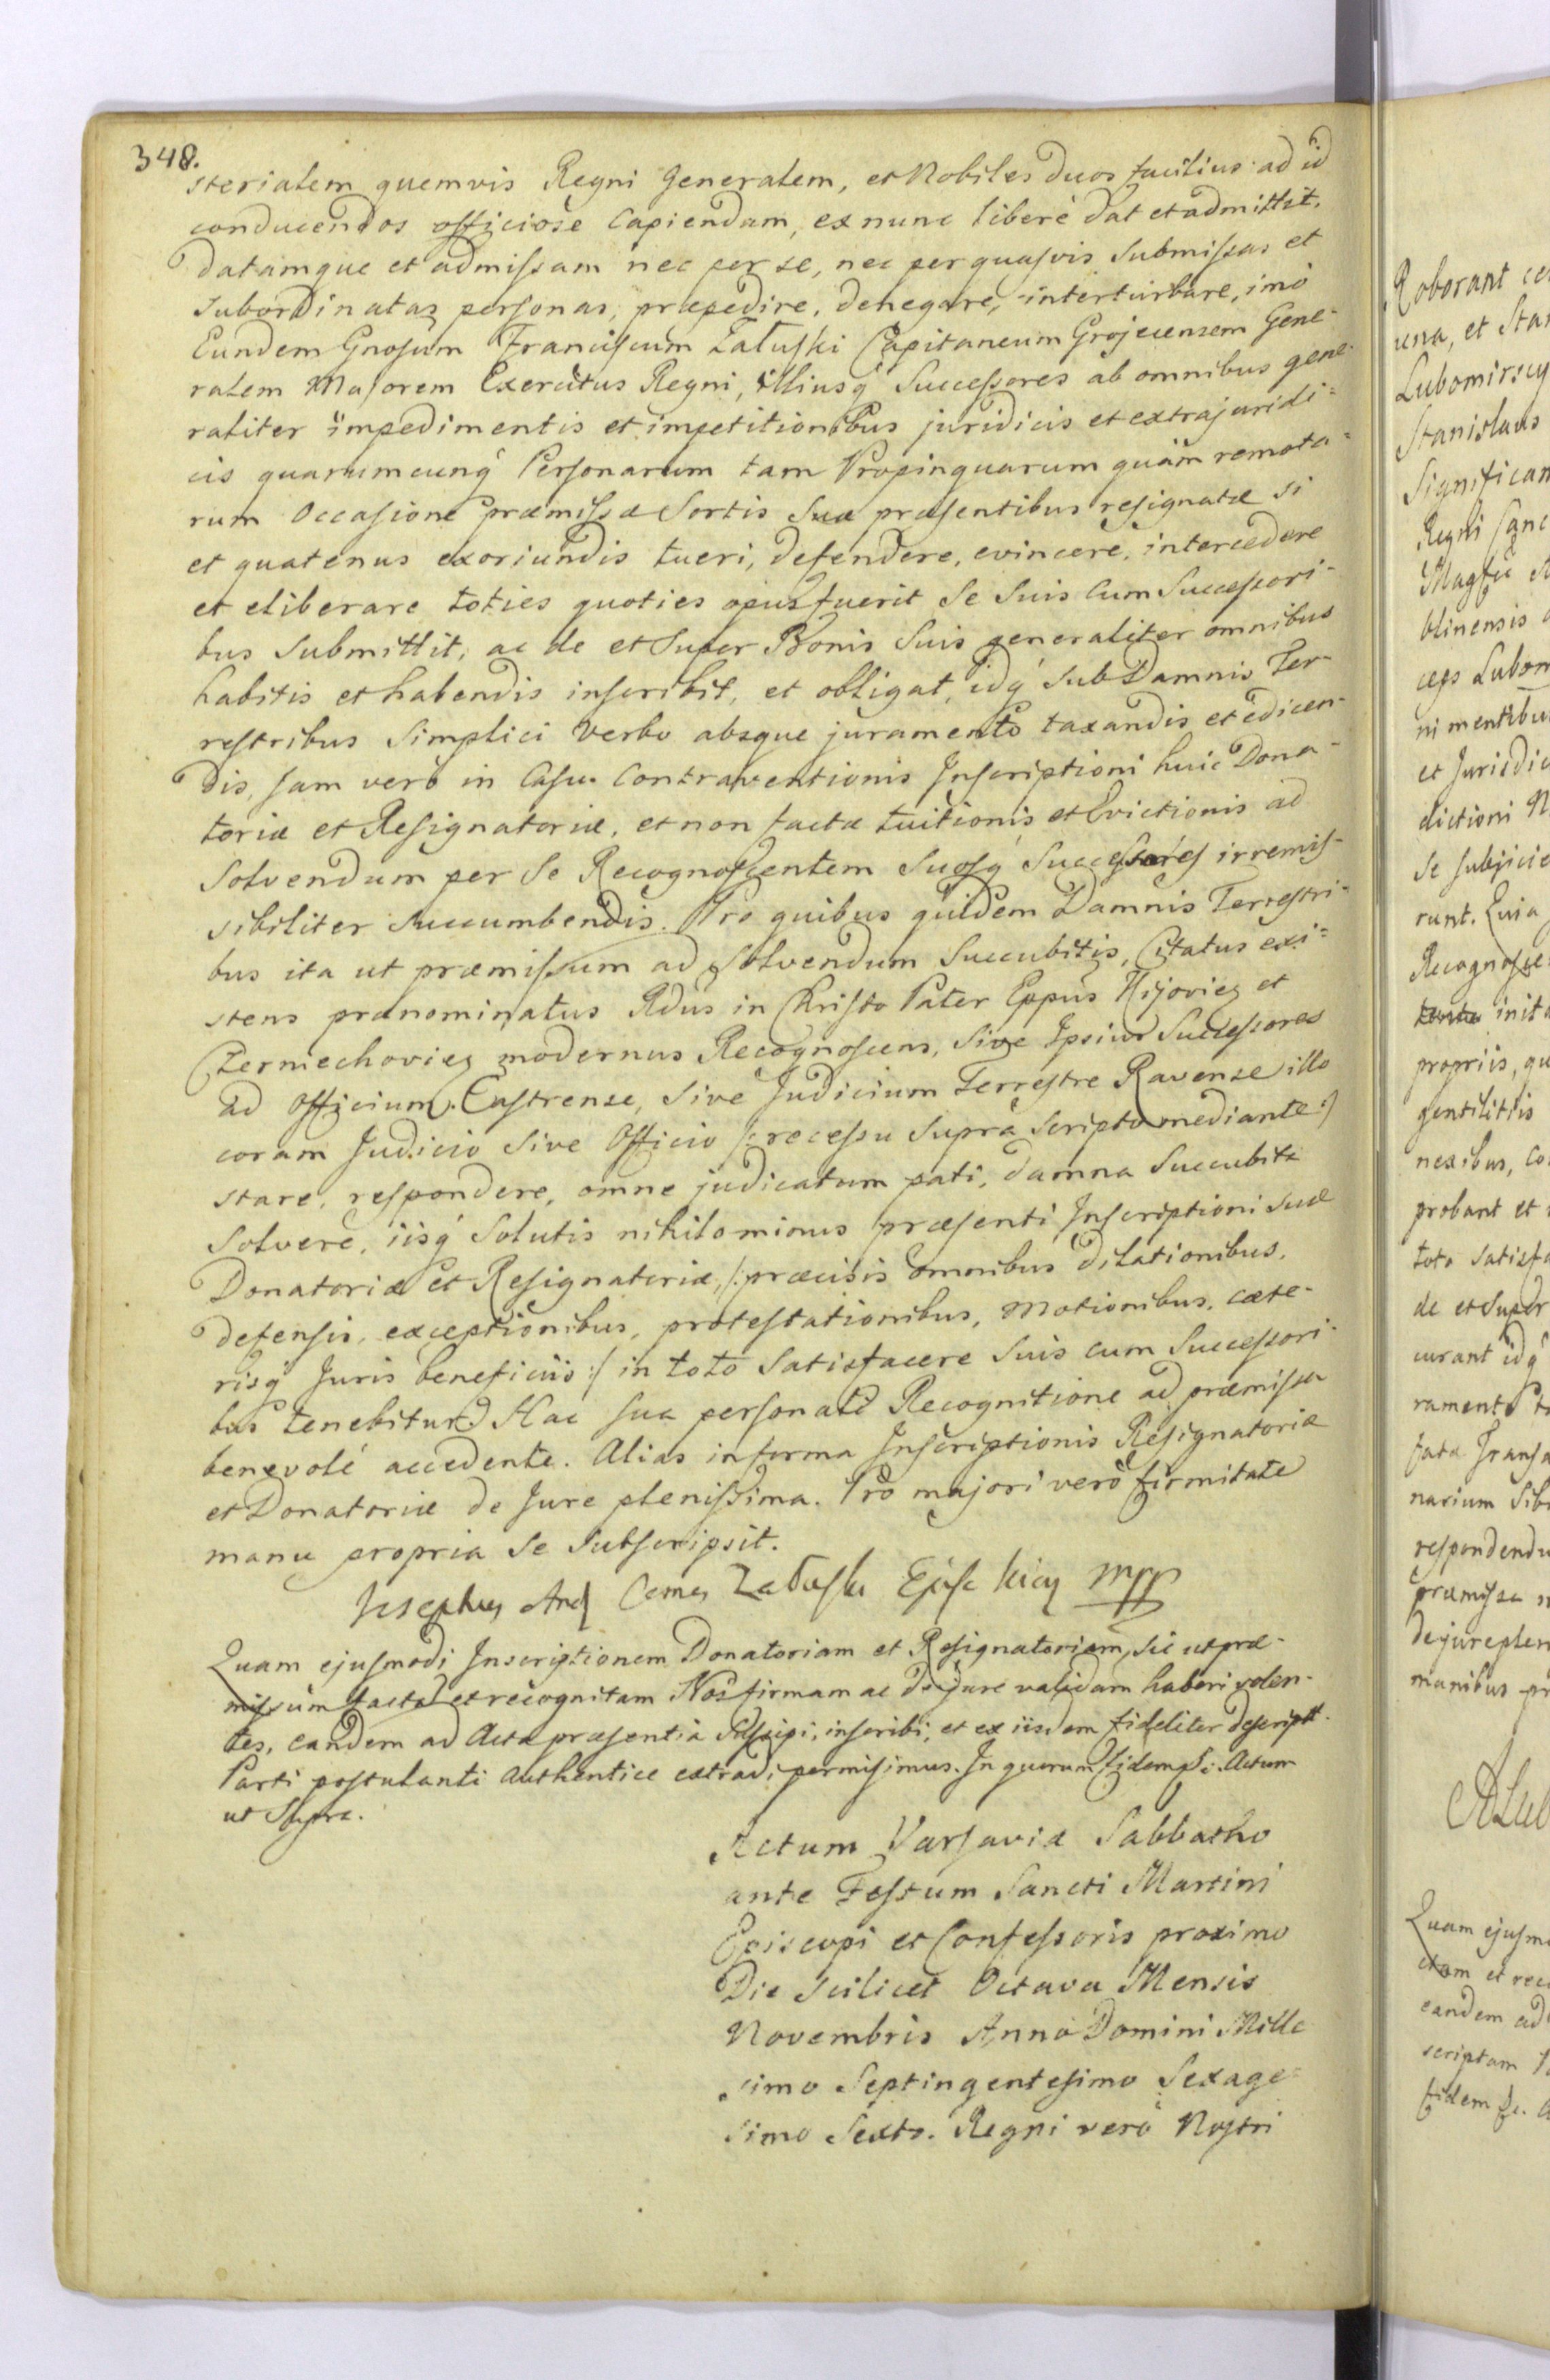 348.
sterialem quemvis Regni Generalem, et Nobiles duos facilius ad id
conducendos officiose Capiendam, ex nunc liberè dat et admittit.
datamque et admissam nec per se, nec per quasvis Submissas et
subordinatas personas, præpedire, denegare, interturbare, imò
Eundem Gnosum Franciscum Załuski Capitaneum Grojecensem Gene-
ralem Majorem Exercitus Regni, illiusq́ Successores ab omnibus gene-
raliter impedimentis et impetitionibus juridicis et extrajuridi-
cis quarumcunq́ Personarum tam Propinquarum quàm remota-
rum Occasione præmissæ Sortis Suæ præsentibus resignatæ si
et quatenus exoriundis tueri, defendere, evincere, intercedere
et eliberare toties quoties opus fuerit Se Suis Cum Successori-
bus Submittit, ac de et Super Bonis Suis generaliter omnibus
habitis et habendis inscribit, et obligat, idq́ Sub Damnis Ter-
restribus Simplici Verbo absque juramento taxandis et edicen-
dis, Jam verò in Casu Contraventionis Inscriptioni huic Dona-
toriæ et Resignatoriæ, et non factæ tuitionis et Evictionis ad
Solvendum per Se Recognoscentem Suosq́ Successores irremis-
sibiliter succumbendis. Pro quibus quidem Damnis Terrestri-
bus ita ut præmissum ad Solvendum Succubitis, Citatus exi-
stens prænominatus Rdus in Christo Pater Eppus Kijovien et
Czerniechovien modernus Recognoscens, Sive Ipsius Successores
ad Officium Castrense, Sive Judicium Terrestre Ravense illo
coram Judicio Sive Officio /: recessu Supra Scripto mediante :/
stare, respondere, omne judicatum pati, damna Succubita
Solvere, iisq́ Solutis nihilominus præsenti Inscriptioni Suæ
Donatoriæ et Resignatoriæ, /: præcisis omnibus dilationibus,
defensis, exceptionibus, protestationibus, Motionibus, cæte-
risq́ Juris beneficiis :/ in toto Satisfacere Suis cum Successori-
bus tenebitur. Hac Sua personali Recognitione ad præmissa
benevolé accedente. Alias in forma Inscriptionis Resignatoriæ
et Donatoriæ de Jure plenissima. Pro majori verò firmitate
manu propria Se Subscripsit.
Josephus And Comes Załuski Episc Kiov mpp
Quam ejusmodi Inscriptionem Donatoriam et Resignatoriam, Sic ut præ-
missum factam et recognitam Nos firmam ac de jure validam haberi volen-
tes, eandem ad Acta præsentia Suscipi, inscribi, et ex iisdem fideliter descript.
Parti postulanti Authentice extradi permisimus. In quorum fidem &c. Actum
ut Supra.
Actum Varsaviæ Sabbatho
ante Festum Sancti Martini
Episcopi et Confessoris proximo
Die scilicet Octava Mensis
Novembris Anno Domini Mille
simo Septingentesimo Sexage-
simo Sexto. Regni verò Nostri
Roborant
una, et
Lubomirscy
Stanislaus
Regni
blinensis
ceps
et
dictioni
Se subjicie
runt. Quia
inita
propriis,
gentilitiis
nexibus,
probant et
toto
de et Super
curant idq́
narium
respondendu
præmissa
de jure plen
manibus
Quam ejusm
eandem ad
scriptam
fidem &c.